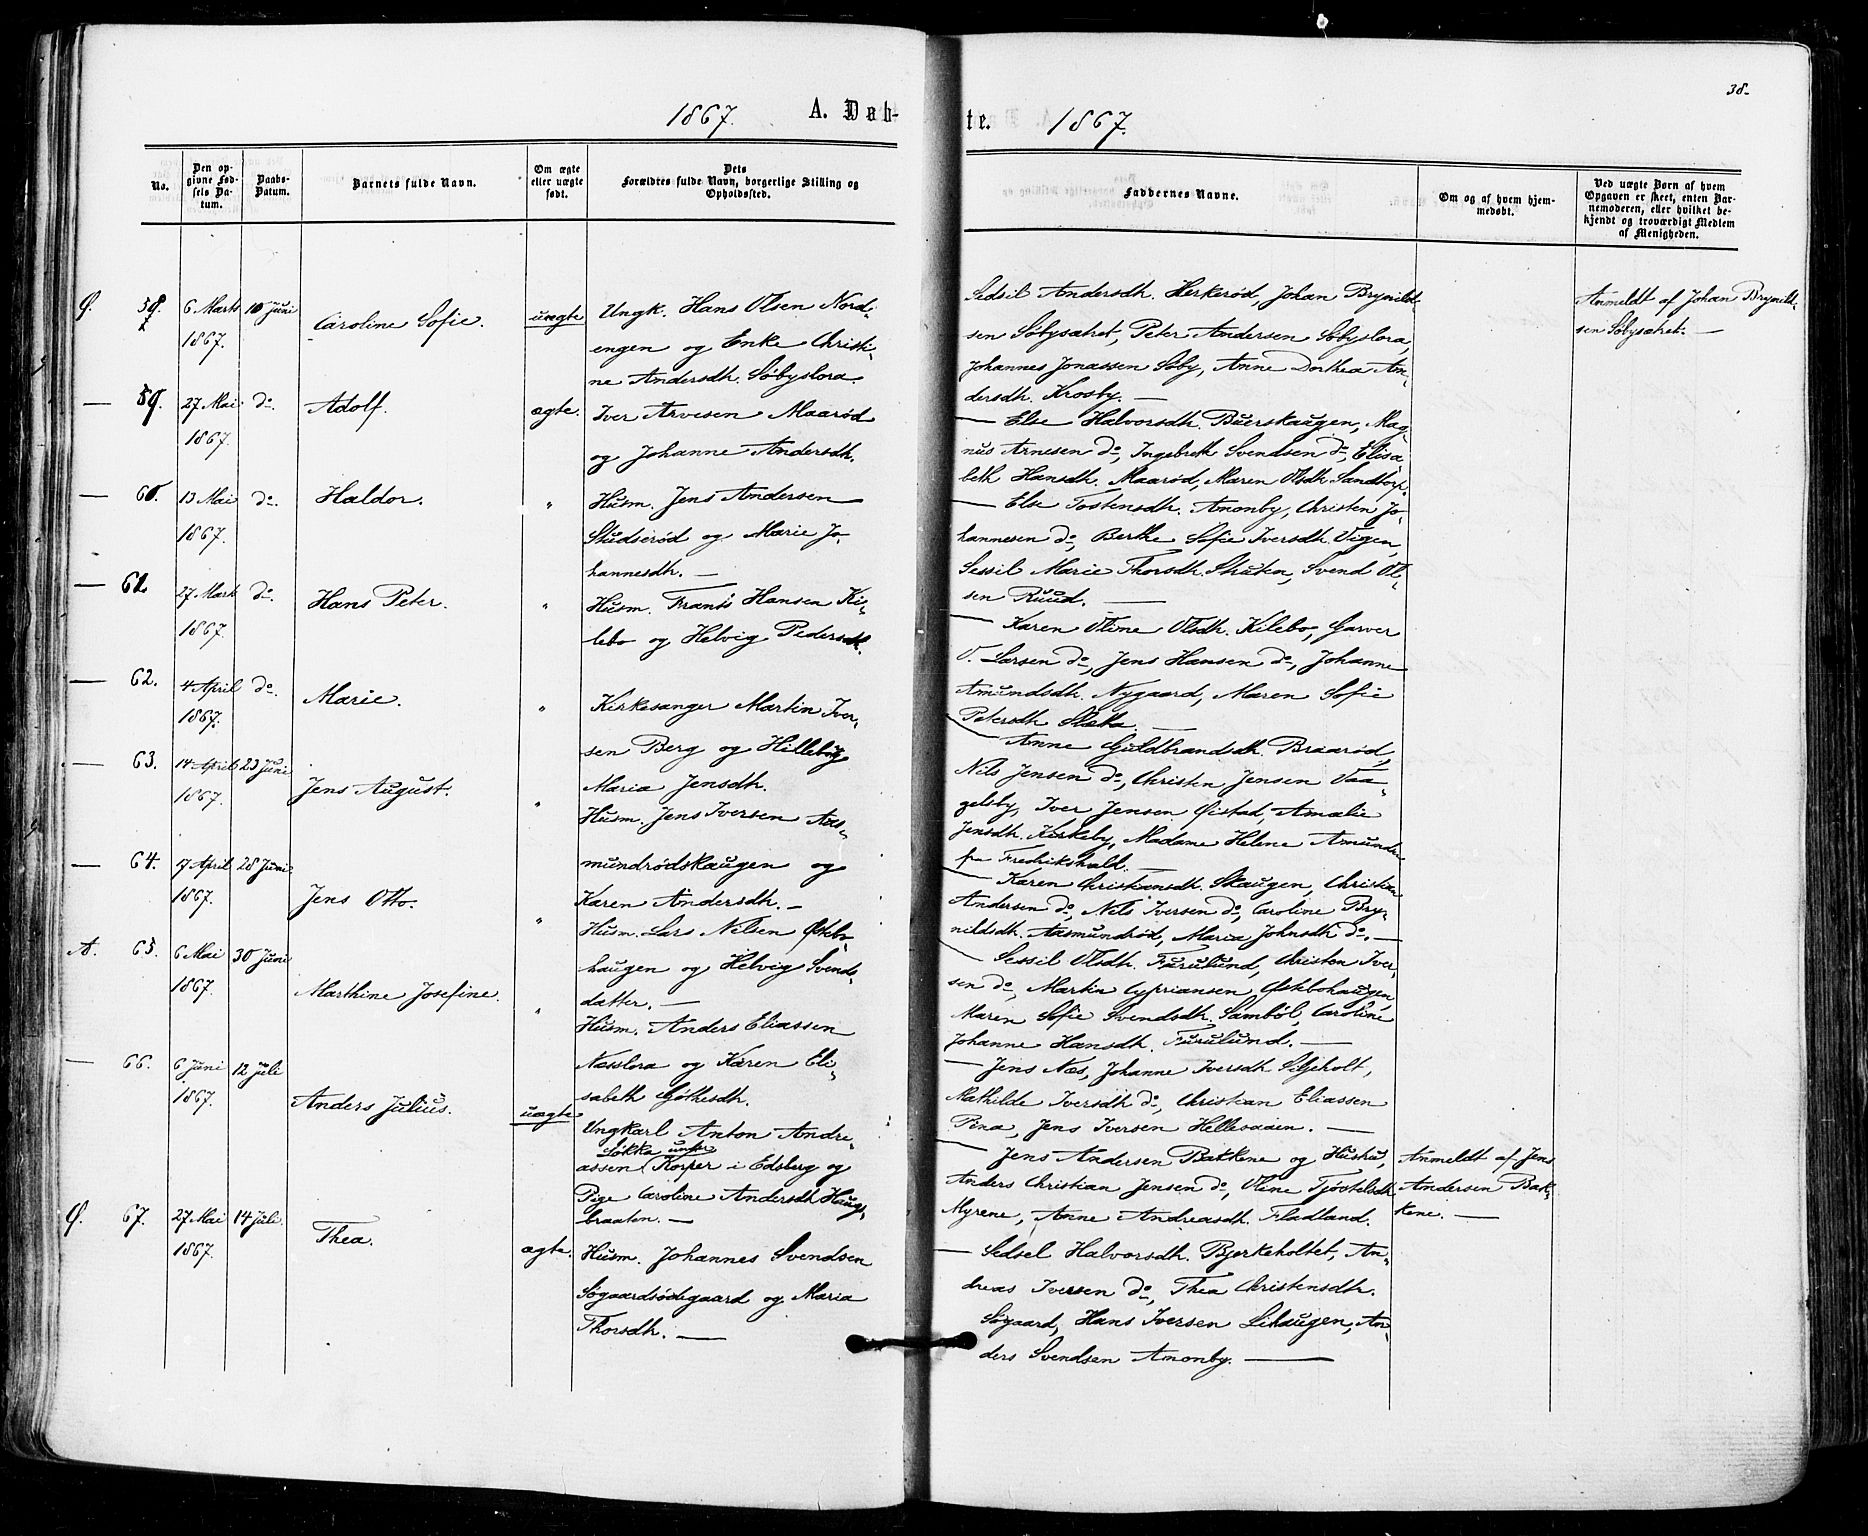 38.
1867. A. Døb-
te. 1867.
No.
Den op-
givne Fød-
sels Da-
tum.
Daabs-
Datum.
Barnets fulde Navn.
Om ægte
eller uægte
født.
Dets
Forældres fulde Navn, borgerlige Stilling og
Opholdssted.
Faddernes Navne.
Om og af hvem hjem-
medøbt.
Ved uægte Børn af hvem
Opgaven er skeet, enten Bar-
nemoderen, eller hvilket be-
kjendt og troværdigt Medlem
af Menigheden.
Ø. 58. 6 Marts 1867. 10 Juni Caroline Sofie. uægte
Ungk. Hans Olsen Nord-
engen og Enke Christi-
ne Andersdh. Søbyslora.
Sedsil Andersdh. Herkerød, Johan Brynild-
sen Søbysætret, Peter Andersen Søbyslora,
Johannes Jonassen Søby, Anne Dorthea An-
dersdh. Krosby. —
Anmeldt af Johan Brynild-
sen Søbysætret. —
— 59. 27 Mai 1867. do. Adolf. ægte.
Iver Arvesen Maarød
og Johanne Andersdh.
— Else Halvorsdh. Buerskaugen, Mag-
nus Arnesen do, Ingebreth Svendsen do, Elisa-
beth Hansdh. Maarød, Maren Olsdh. Sandtorp.
— 60. 13 Mai 1867. do. Haldor. "
Husm. Jens Andersen
Studserød og Marie Jo-
hannesdh. —
— Else Tostensdh. Amonby, Christen Jo-
hannesen do, Berthe Sofie Iversdh. Vigen,
Sessil Marie Thorsdh. Skuka, Svend Ol-
sen Ruud. —
— 61. 27 Mark 1867. do. Hans Peter. "
Husm. Frants Hansen Ki-
lebo og Helvig Pedersdh.
— Karen Oline Olsdh. Kilebo, Garver
O. Larsen do, Jens Hansen do, Johanne
Amundsdh. Nygaard, Maren Sofie
Petersdh Sletta —
— 62. 4 April 1867. do. Marie. "
Kirkesanger Martin Iver-
sen Berg og Hilleborg
Maria Jensdh.
— Anne Guldbrandsdh. Braarød,
Nils Jensen do, Christen Jensen Vaa-
gelsby, Iver Jensen Øistad, Amalie
Jensdh. Kirkeby, Madame Helene Amundsen
fra Fredrikshald. —
— 63. 14 April 1867. 23 Juni Jens August. "
Husm. Jens Iversen Aas-
mundrødskaugen og
Karen Andersdh. —
— Karen Christiansdh. Skaugen, Christian
Andersen do, Nils Iversen do, Caroline Bry-
nildsdh. Aasmundrød, Maria Johnsdh do. —
— 64. 17 April 1867. 28 Juni Jens Otto. "
Husm. Lars Nilsen Østebo-
haugen og Helvig Svends-
datter. —
— Sessil Olsdh. Furulund, Christen Iver-
sen do, Martin Cypriansen Østebohaugen,
Maren Sofie Svendsdh. Sambøl, Caroline
Johanne Hansdh. Furulund. —
A. 65. 6 Mai 1867. 30 Juni Marthine Josefine. "
Husm. Anders Eliassen
Næsslora og Karen Eli-
sabeth Gøthesdh.
— Jens Næs, Johanne Iversdh. Siljeholt,
Mathilde Iversdh do, Christian Eliassen
Pina, Jens Iversen Hellesaaen. —
— 66. 6 Juni 1867. 12 Juli Anders Julius. uægte
Ungkarl Anton Andre-
assen Løkka under Korper i Edsberg og
Pige Caroline Andersdh Haug-
braaten. —
— Jens Andersen Bakkene og Hustru,
Anders Christian Jensen do, Oline Tjøstelsdh.
Myrene, Anne Andreasdh. Fladland.
Anmeldt af Jens
Andersen Bak-
kene. —
Ø. 67. 27 Mai 1867. 14 Juli. Thea. ægte.
Husm. Johannes Svendsen
Søgaardsødegaard og Maria
Thorsdh. —
— Sedsel Halvorsdh. Bjerkeholtet, An-
dreas Iversen do, Thea Christensdh.
Søgaard, Hans Iversen Lihaugen, An-
ders Svendsen Amonby. —